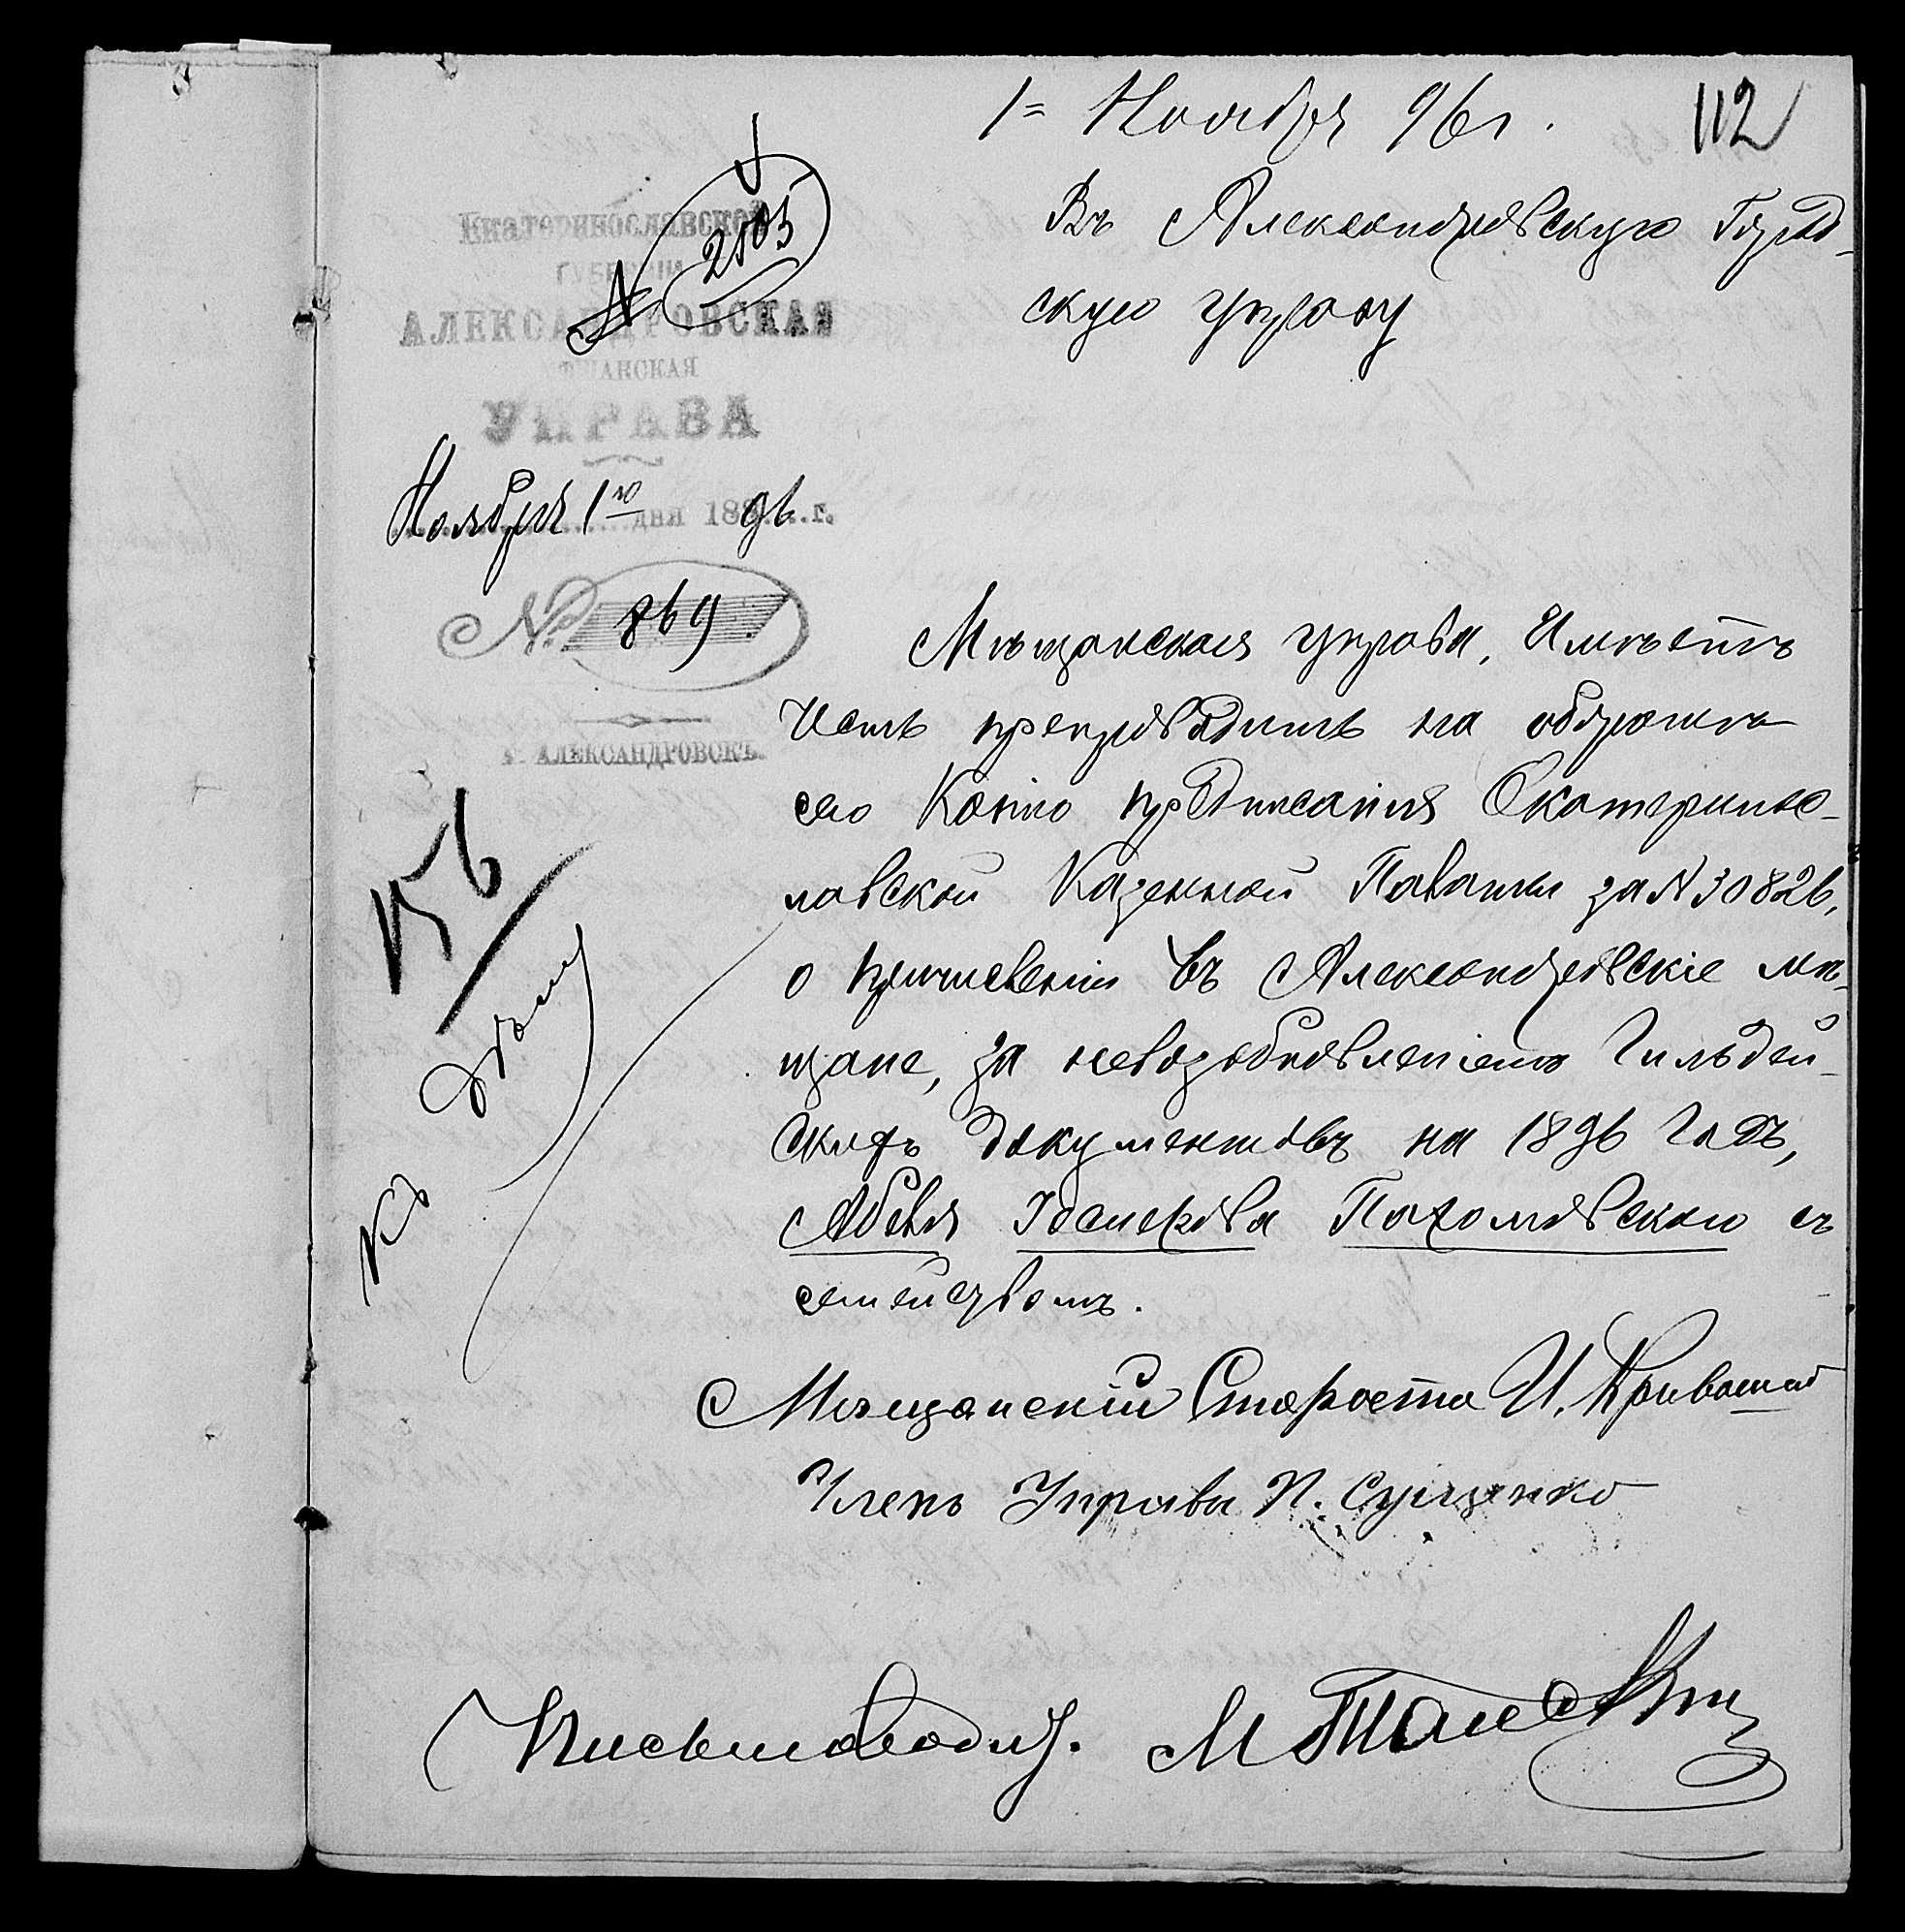 1= Ноября 96 г.
112
Въ Александровскую Город-
скую управу
Екатеринославской
ГУБЕРНІИ
№ 2505
АЛЕКСАНДРОВСКАЯ
МѢЩАНСКАЯ
УПРАВА
Ноября 1го дня 1896 г.
№ 869
Г. АЛЕКСАНДРОВСКЪ.
Мѣщанская управа, Имѣетъ
честь препроводить на оборотѣ
сего Копію предписанія Екатеринос-
лавской Казенной Палаты за № 30826,
о причисленіи въ Александровскіе мѣ-
щане, за невозобновленіемъ Гильдей-
скихъ документовъ на 1896 Годъ,
Абеля Іосиефова Пахомовскаго съ
семействомъ.
156
Къ дѣлу
Мѣщанскій Староста И. Кривошей
Членъ Управы П. Сущенко
Письмоводит.